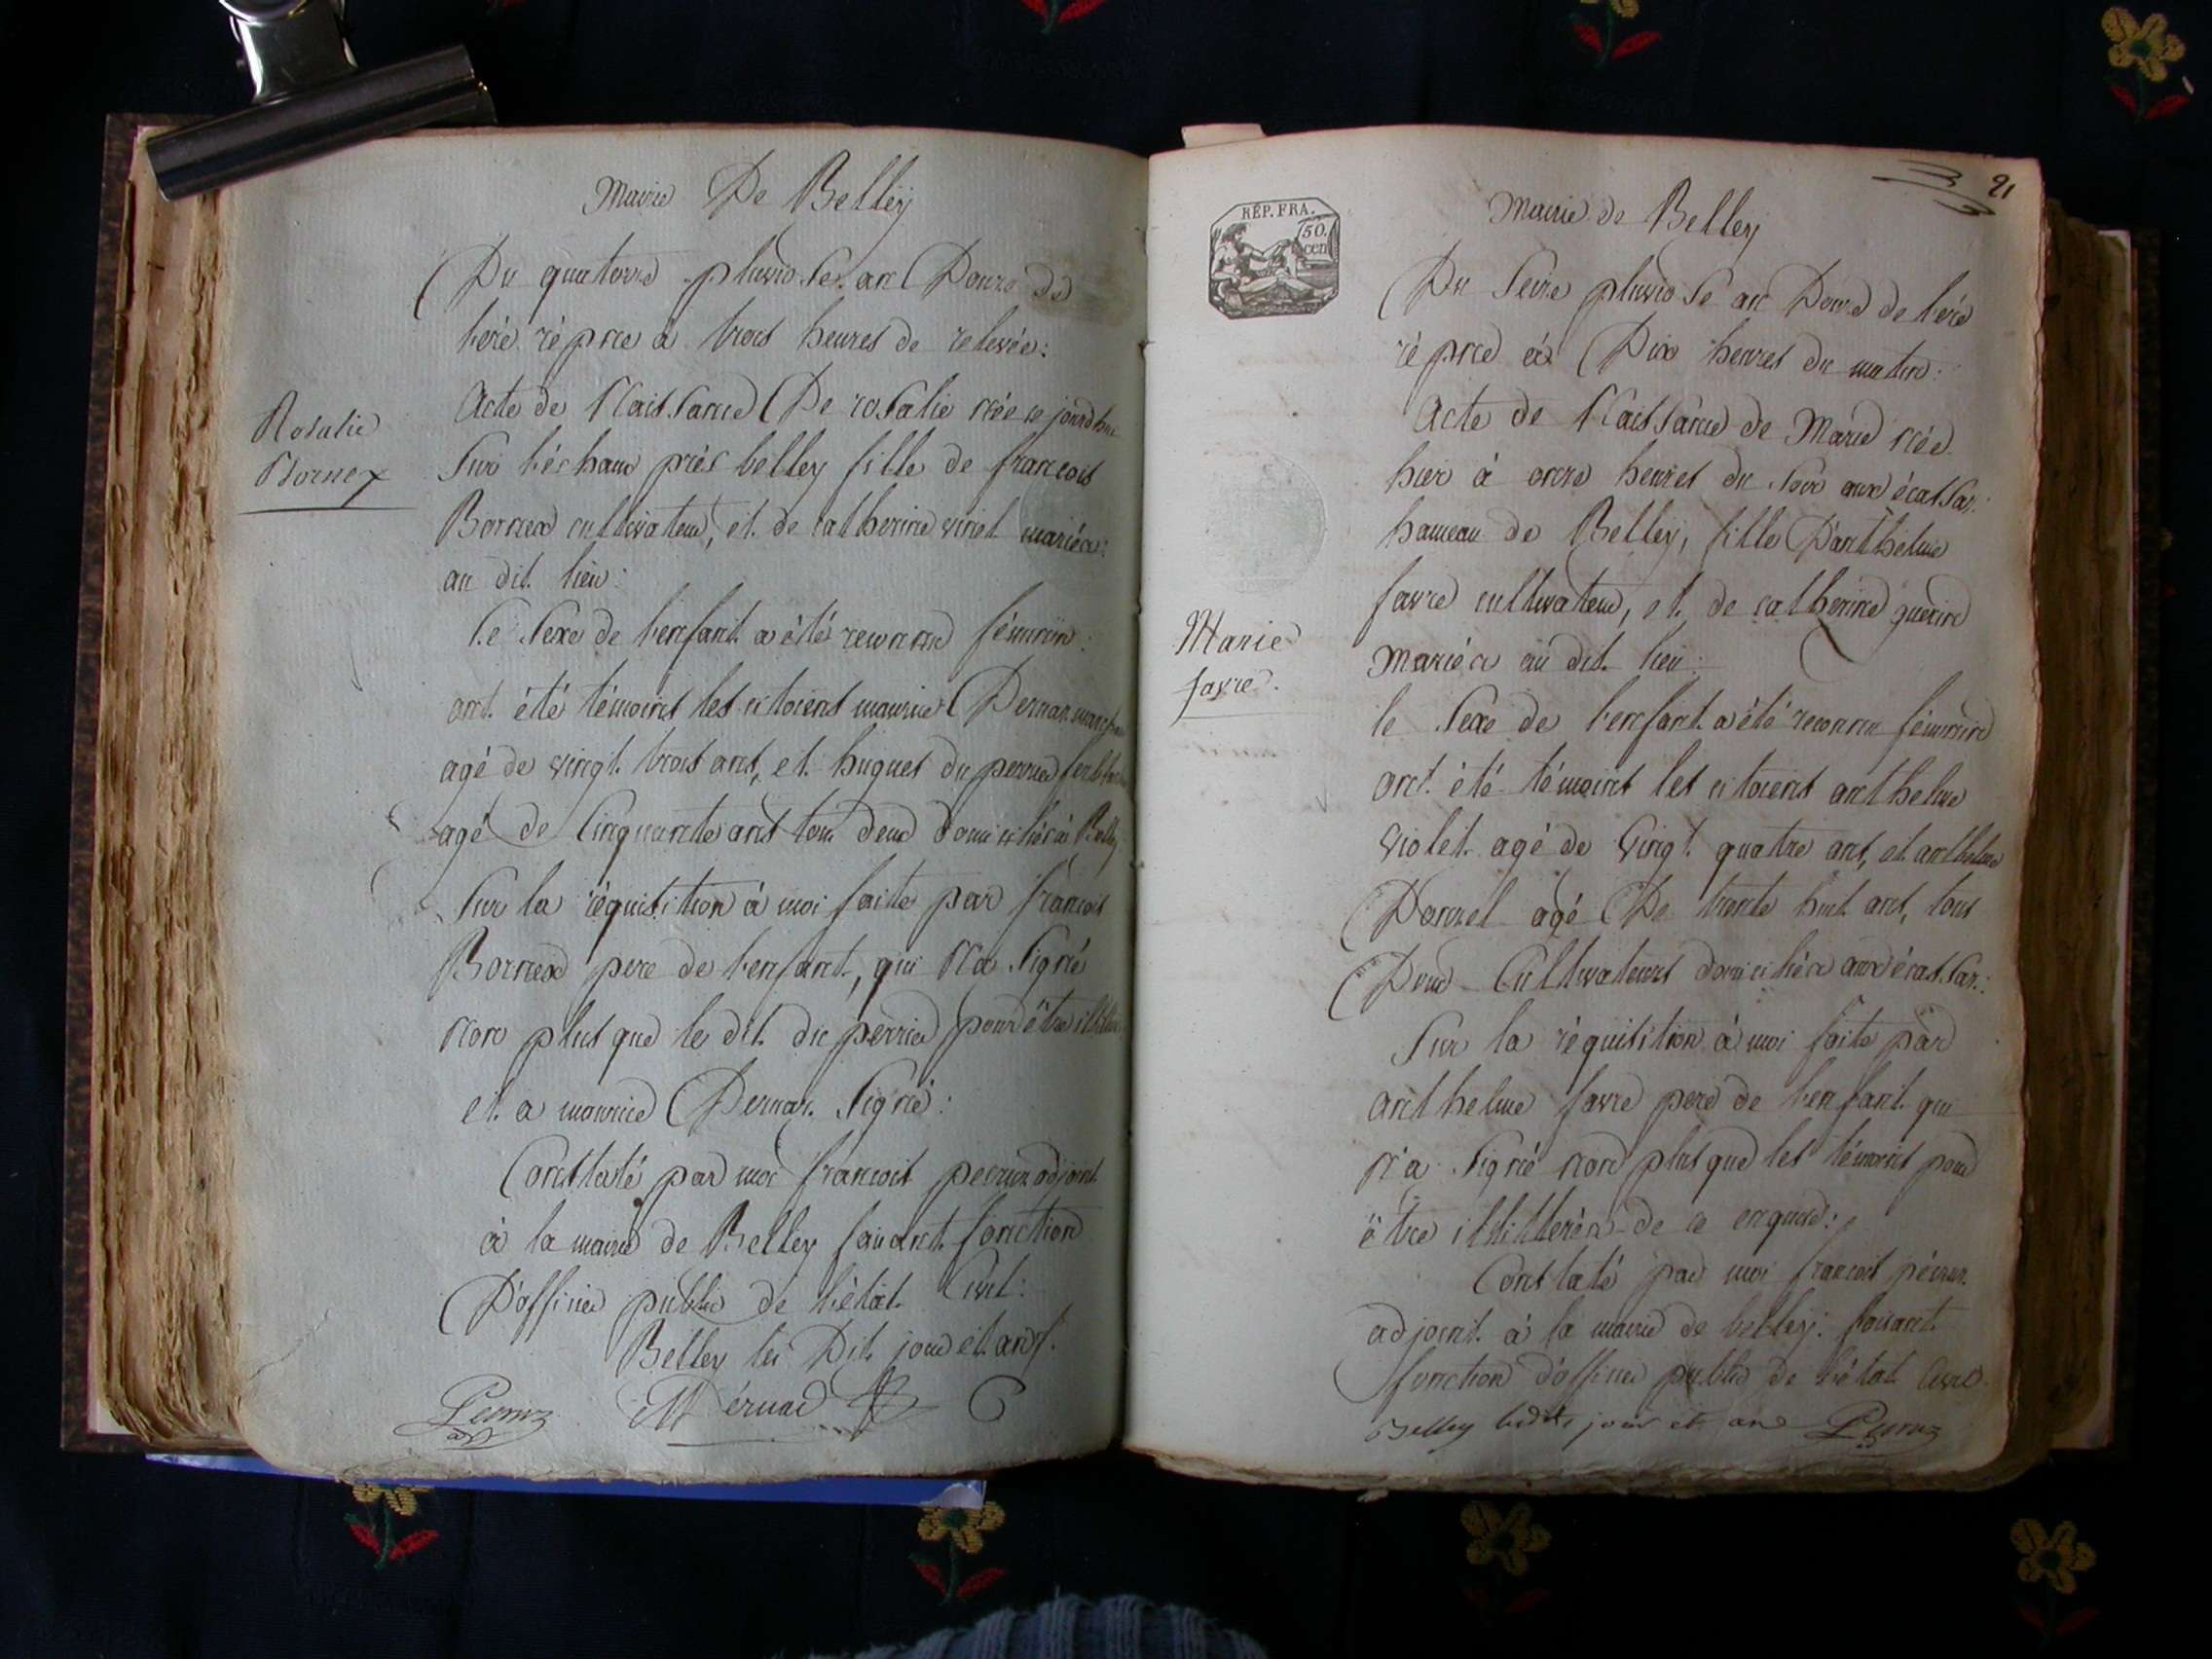 Mairie De Belley
Du quatorze pluviose an Douze de
l'ère rép.ne à trois heures de relevée:
Rosalie
Bornex
Acte de Naissance De rosalie née ce jourd'hui
Sur léchaux près belley fille de francois
Bornex cultivateur, et de catherine viriet mariés:
au dit lieu:
Le Sexe de l'enfant a été reconnu féminin:
ont été témoins les citoiens maurice Dernaz
agé de vingt trois ans, et hugues du perrier
agé de Cinquante ans tous deux domiciliés à Belley
Sur la réquisition à moi faite par francois
Bornex pere de l'enfant, qui N'a Signé
Non plus que le dit du perrier pour être illitéré
et a maurice Dernaz Signé:
Constaté par moi francois peorux adjoint
à la mairie de Belley faisant fonction
D'officier public de l'état Civil:
Belley les Dit jour et ans.
M Dérnaz
RÉP. FRA.
50.
cen
21
Mairie de Belley
Du Seize pluviose an Douze de l'ére
rép.ne à Dix heures du matin:
Acte de Naissance de Marie née
hier à onze heures du Soir aux écassaz:
hameau de Belley, fille D'anthelme
favre cultivateur, et de catherine guerin
mariés au dit lieu:
Marie
favre.
le Sexe de l'enfant a été reconnu féminin
ont été témoins les citoiens anthelme
violet agé de vingt quatre ans, et anthelme
Donzel agé De trente huit ans, tous
Deux Cultivateurs domiciliés aux écassaz:
Sur la réquisition à moi faite par
anthelme favre pere de l'enfant qui
N'a Signé Non plus que les témoins pour
être illitterés de ce enquis:
Constaté par moi francois
adjoint à la mairie de belley: faisant
fonction d'officier public de l'état Civil
Belley lesdits jour et an